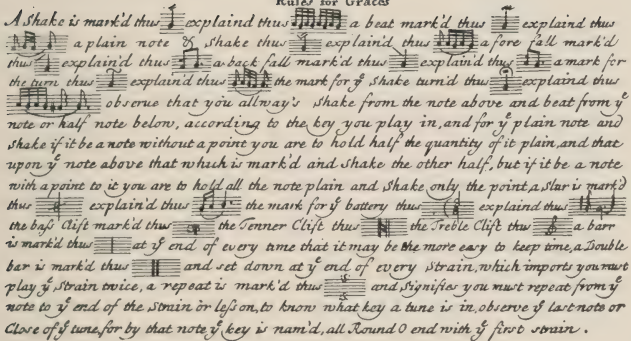 Rules for Graces
A shake is mark'd thus explaind thus a beat mark'd thus explaind thus
a plain note & shake thus explain'd thus a fore fall mark'd
thus explain'd thus a back fall mark'd thus explain'd thus a mark for
the turn thus explain'd thus the mark for yͤ shake turn'd thus explaind thus
observe that you allway's shake from the note above and beat from yͤ
note or half note below, according to the key you play in, and for yͤ plain note and
shake if it be a note without a point you are to hold half the quantity of it plain, and that
upon yͤ note above that which is mark'd and shake the other half, but if it be a note
with a point to it you are to hold all the note plain and shake only the point, a slur is mark'd
thus explain'd thus the mark for yͤ battery thus explaind thus
the bass Clift mark'd thus the Tenner Clift thus the Treble Clift thus a barr
is mark'd thus at yͤ end of every time that it may be the more easy to keep time, a Double
bar is mark'd thus and set down at yͤ end of every Strain, which imports you must
play yͤ Strain twice, a repeat is mark'd thus and signifies you must repeat from yͤ
note to yͤ end of the Strain or lesson, to know what key a tune is in, observe yͤ last note or
Close of yͤ tune, for by that note yͤ key is nam'd, all Round O end with yͤ first strain.